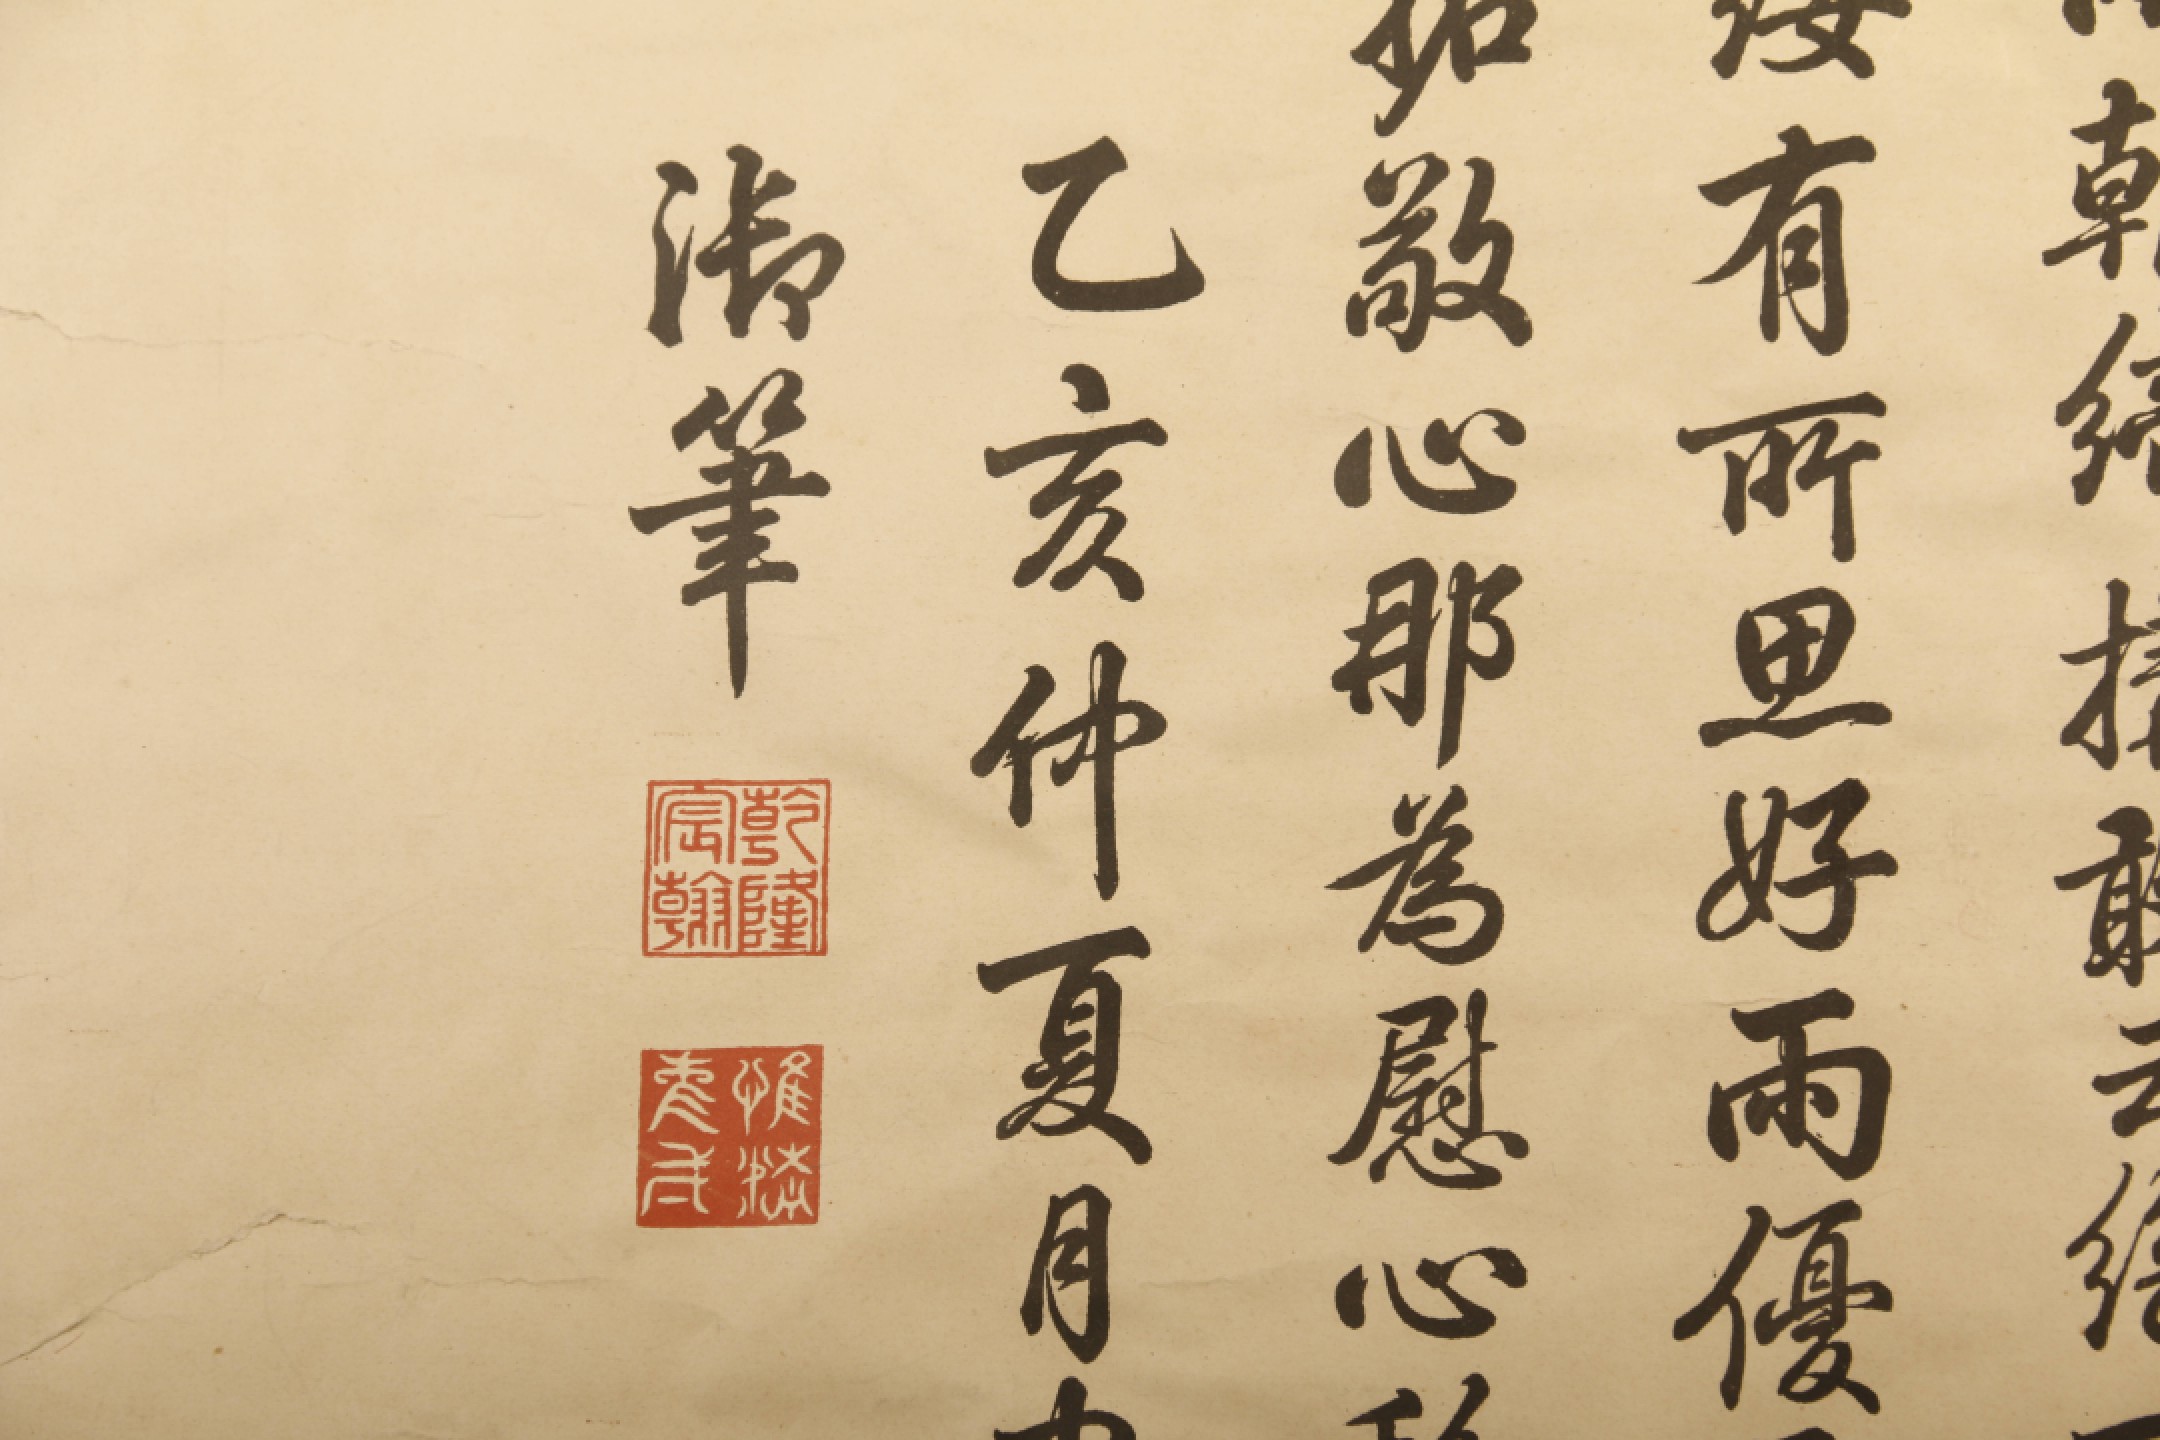 朝
敢
有所思好雨優
敬心那為慰心
乙亥仲夏月中
御筆
乾隆宸翰
惟精惟一